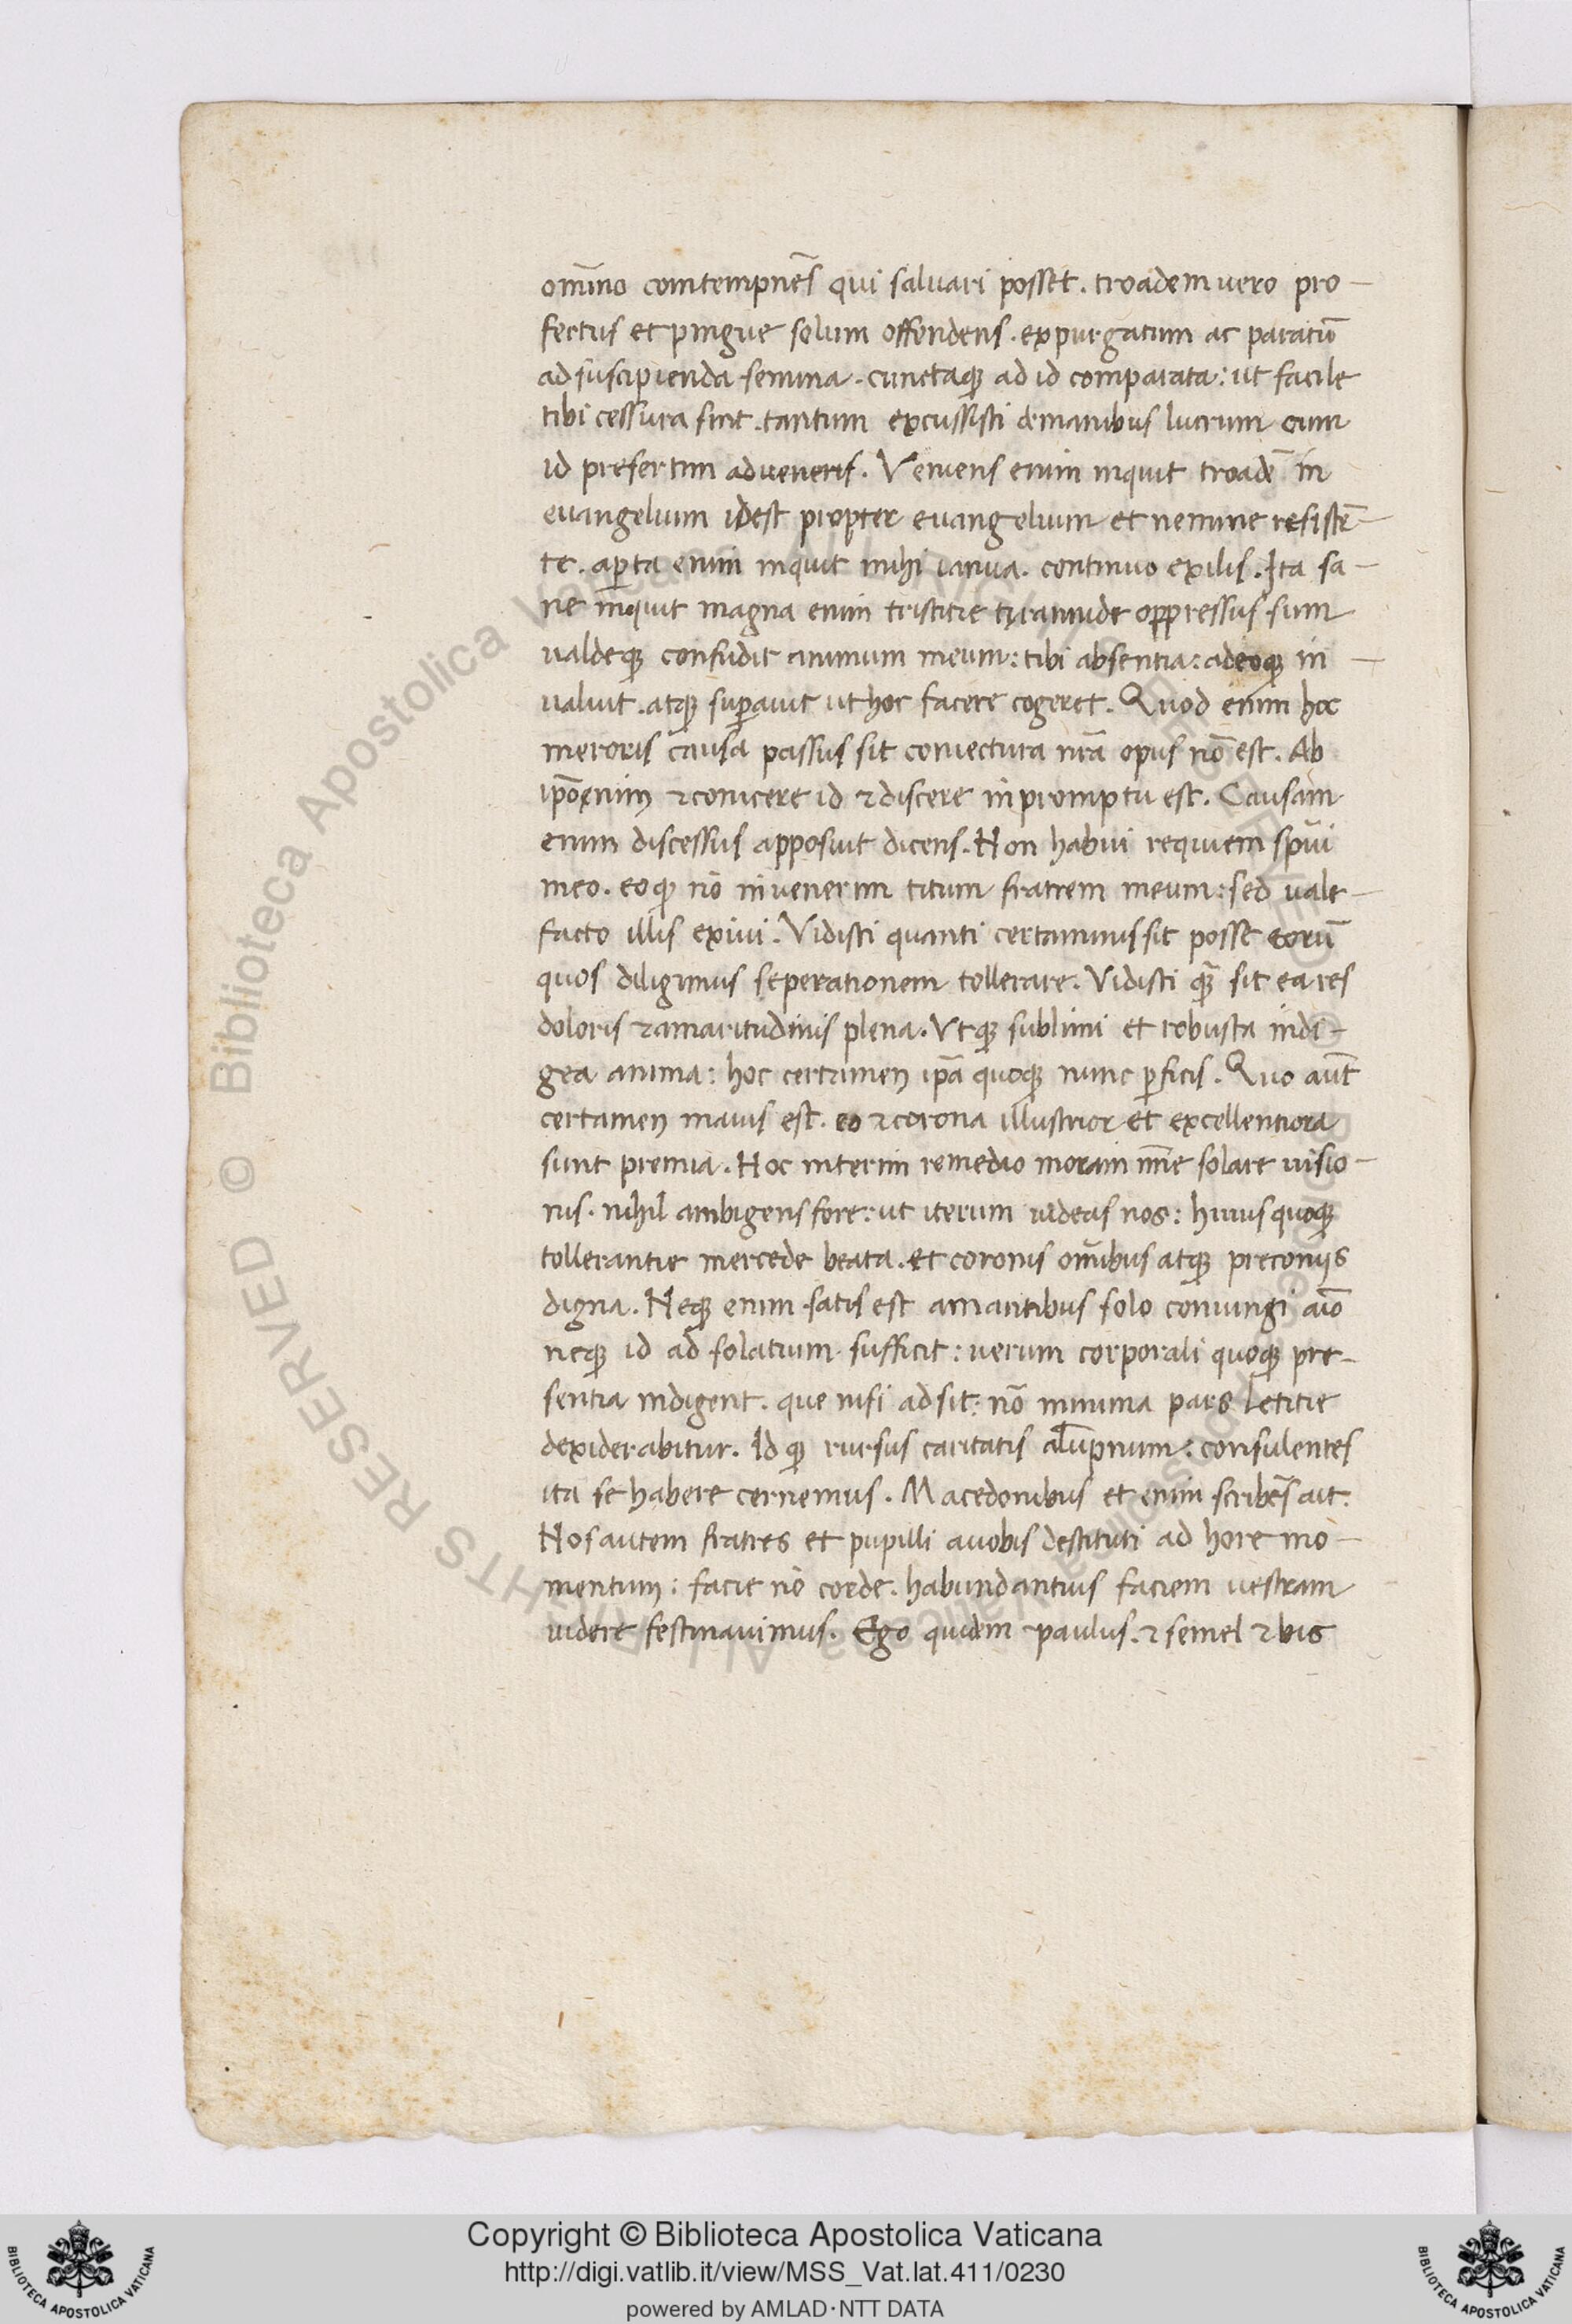 om̅ino comtempne̅s qui saluari posset. troadem uero pro-
fectus et pingue solum offendens. expurgatum ac paratu̅
ad suscipienda semina. cunctaqꝫ ad id comparata: ut facile
tibi cessura sint. tantum excussisti de manibus lucrum cum
id presertim adueneris. Veniens enim inquit troade̅ in
euangelium idest propter euangelium et nemine resiste̅-
te. aꝑta enim inquit mihi ianua. continuo exilis. Ita sa-
ne inquit magna enim tristitie tyrannide oppressus sum
ualdeqꝫ confudit animum meum: tibi absentia: adeoqꝫ in-
ualuit. atqꝫ suꝑauit ut hoc facere cogeret. Quod enim hoc
meroris causa passus sit coniectura nr̅a opus no̅ est. Ab
ip̅o enim ⁊ conicere id ⁊ discere in promptu est. Causam
enim discessus apposuit dicens. Non habui requiem sp̅ui
meo. eo qꝫ no̅ inuenerim titum fratrem meum: sed uale-
facto illis exiui. Vidisti quanti certaminis sit posse eoru̅
quos diligimus seperationem tollerare. Vidisti qꝫ̅ sit ea res
doloris ⁊ amaritudinis plena. Vtqꝫ sublimi et robusta indi-
gea anima: hoc certamen ip̅a quoqꝫ nunc ꝑficis. Quo aut̅
certamen maius est. eo ⁊ corona illustrior et excellentiora
sunt premia. Hoc interim remedio moram nr̅e solare uisio-
nis. nihil ambigens fore: ut iterum uideas nos: huius quoqꝫ
tollerantie mercede beata. et coronis om̅ibus atqꝫ preconiis
digna. Neqꝫ enim satis est amantibus solo coniungi aı̅o
neqꝫ id ad solatium sufficit: uerum corporali quoqꝫ pre-
sentia indigent. que nisi adsit: no̅ minima pars letitie
dexiderabitur. Id qꝫ rursus caritatis alu̅pnum: consulentes
ita se habere cernemus. Macedonibus et enim scribe̅s ait.
Nos autem fratres et pupilli a uobis destituti ad hore mo-
mentum: facie no̅ corde. habundantius faciem uestram
uidere festinauimus. Ego quidem paulus. ⁊ semel ⁊ bis
Copyright © Biblioteca Apostolica Vaticana
http://digi.vatlib.it/view/MSS_Vat.lat.411/0230
powered by AMLAD·NTT DATA